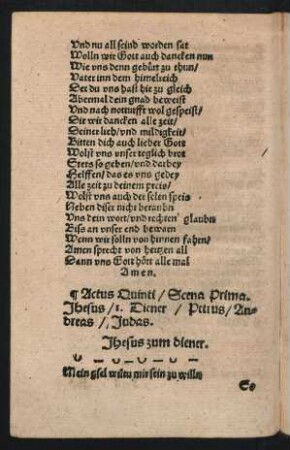 Vnd nu all seind worden sat
Wolln wir Gott auch dancken nun
Wie vns denn gebürt zu thun/
Vater inn dem himelreich
Der du vns hast hie zu gleich
Abermal dein gnad beweist
Vnd nach notturfft wol gespeist/
Dir wir dancken alle zeit/
Deiner lieb/ vnd mildigkeit/
Bitten dich auch lieber Gott
Wolst vns vnser teglich brot
Stets so geben/ vnd darbey
Helffen/ das es vns gedey
Alle zeit zu deinem preis/
Wolst vns auch der selen speis
Neben diser nicht beraubn
Vns dein wort/ vnd rechten glaubn
Biss an vnser end bewarn
Wenn wir solln von hinnen fahrn/
Amen sprecht von hertzen all
Dann vns Gott hört alle mal
Amen.
¶ Actus Quinti / Scena Prima.
Jhesus / 1. Diener / Petrus / An-
dreas / Judas.
Jhesus zum diener.
Mein gsel wiltu mir sein zu willn
So